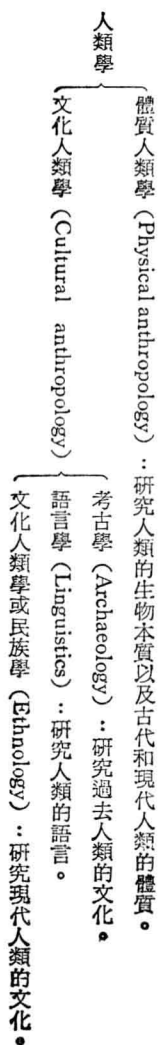 人類學
體質人類學 (Physical anthropology)：研究人類的生物本質以及古代和現代人類的體質。
文化人類學 (Cultural anthropology)
考古學 (Archaeology)：研究過去人類的文化。
語言學 (Linguistics)：研究人類的語言。
文化人類學或民族學 (Ethnology)：研究現代人類的文化。